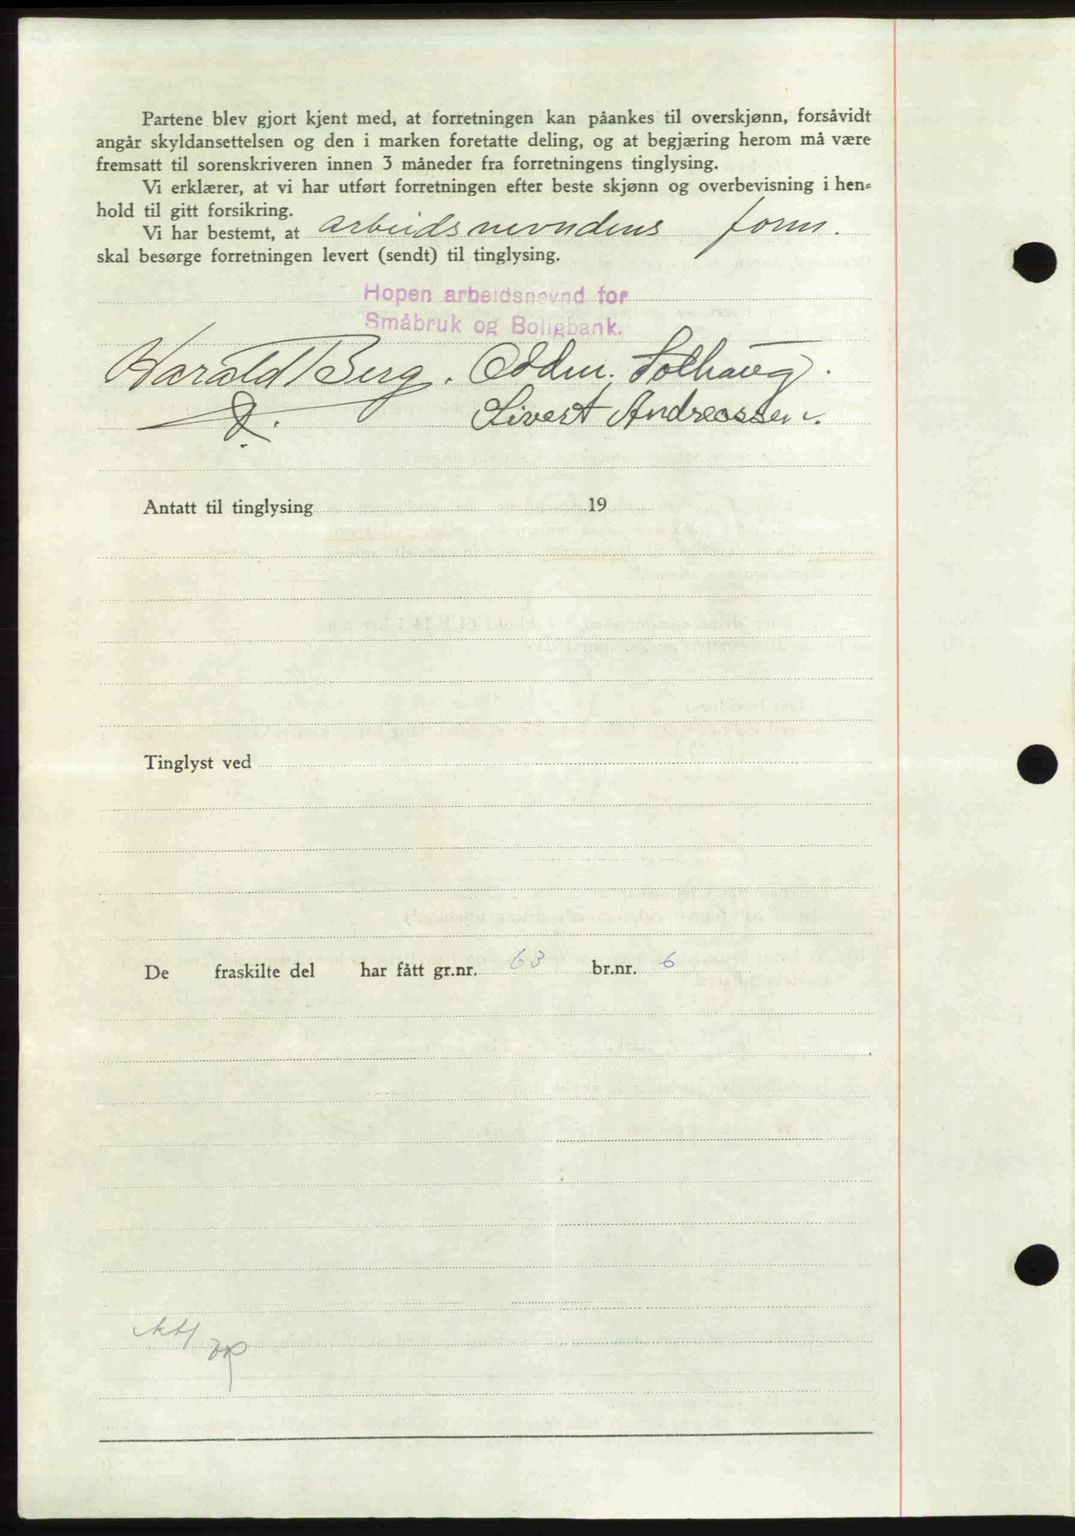 Partene blev gjort kjent med, at forretningen kan påankes til overskjønn, forsåvidt
angår skyldansettelsen og den i marken foretatte deling, og at begjæring herom må være
fremsatt til sorenskriveren innen 3 måneder fra forretningens tinglysing.
Vi erklærer, at vi har utført forretningen efter beste skjønn og overbevisning i hen=
hold til gitt forsikring.
Vi har bestemt, at arbeidsnevndens form.
skal besørge forretningen levert (sendt) til tinglysing.
Hopen arbeidsnevnd for
Småbruk og Boligbank.
Harald Berg. Oddm. Solhaug.
Sivert Andreassen.
Antatt til tinglysing 19
Tinglyst ved
De fraskilte del har fått gr.nr. 63 br.nr. 6